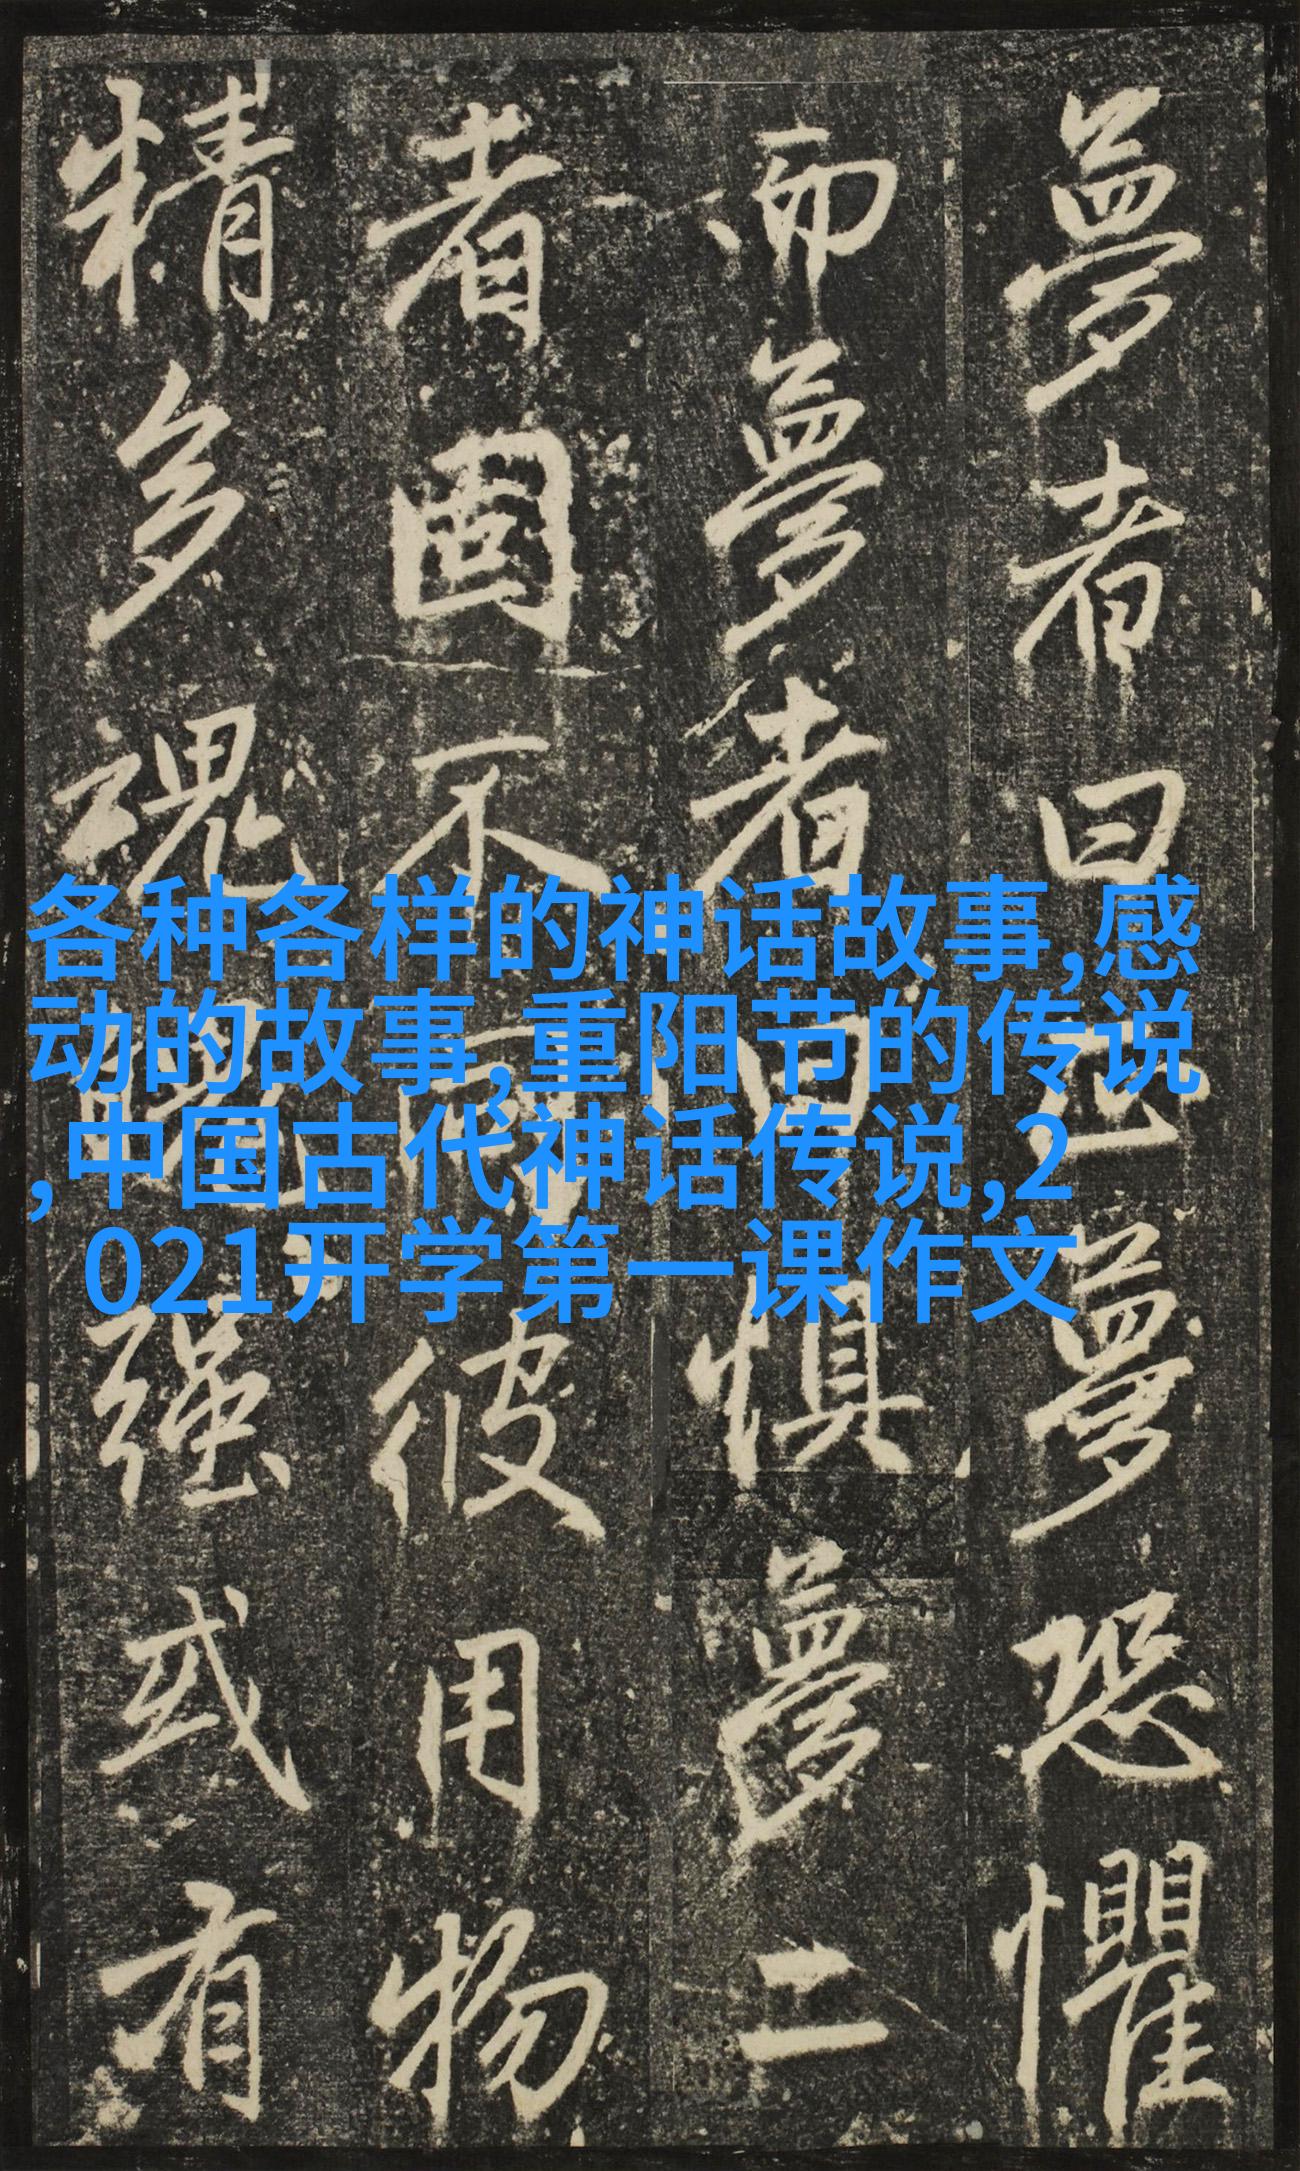 夢者曰正夢恐懼
而夢者曰懼夢二
者固不可彼用物
精多魂魄强或有
各种各样的神话故事,感
动的故事,重阳节的传说
,中国古代神话传说,2
021开学第一课作文